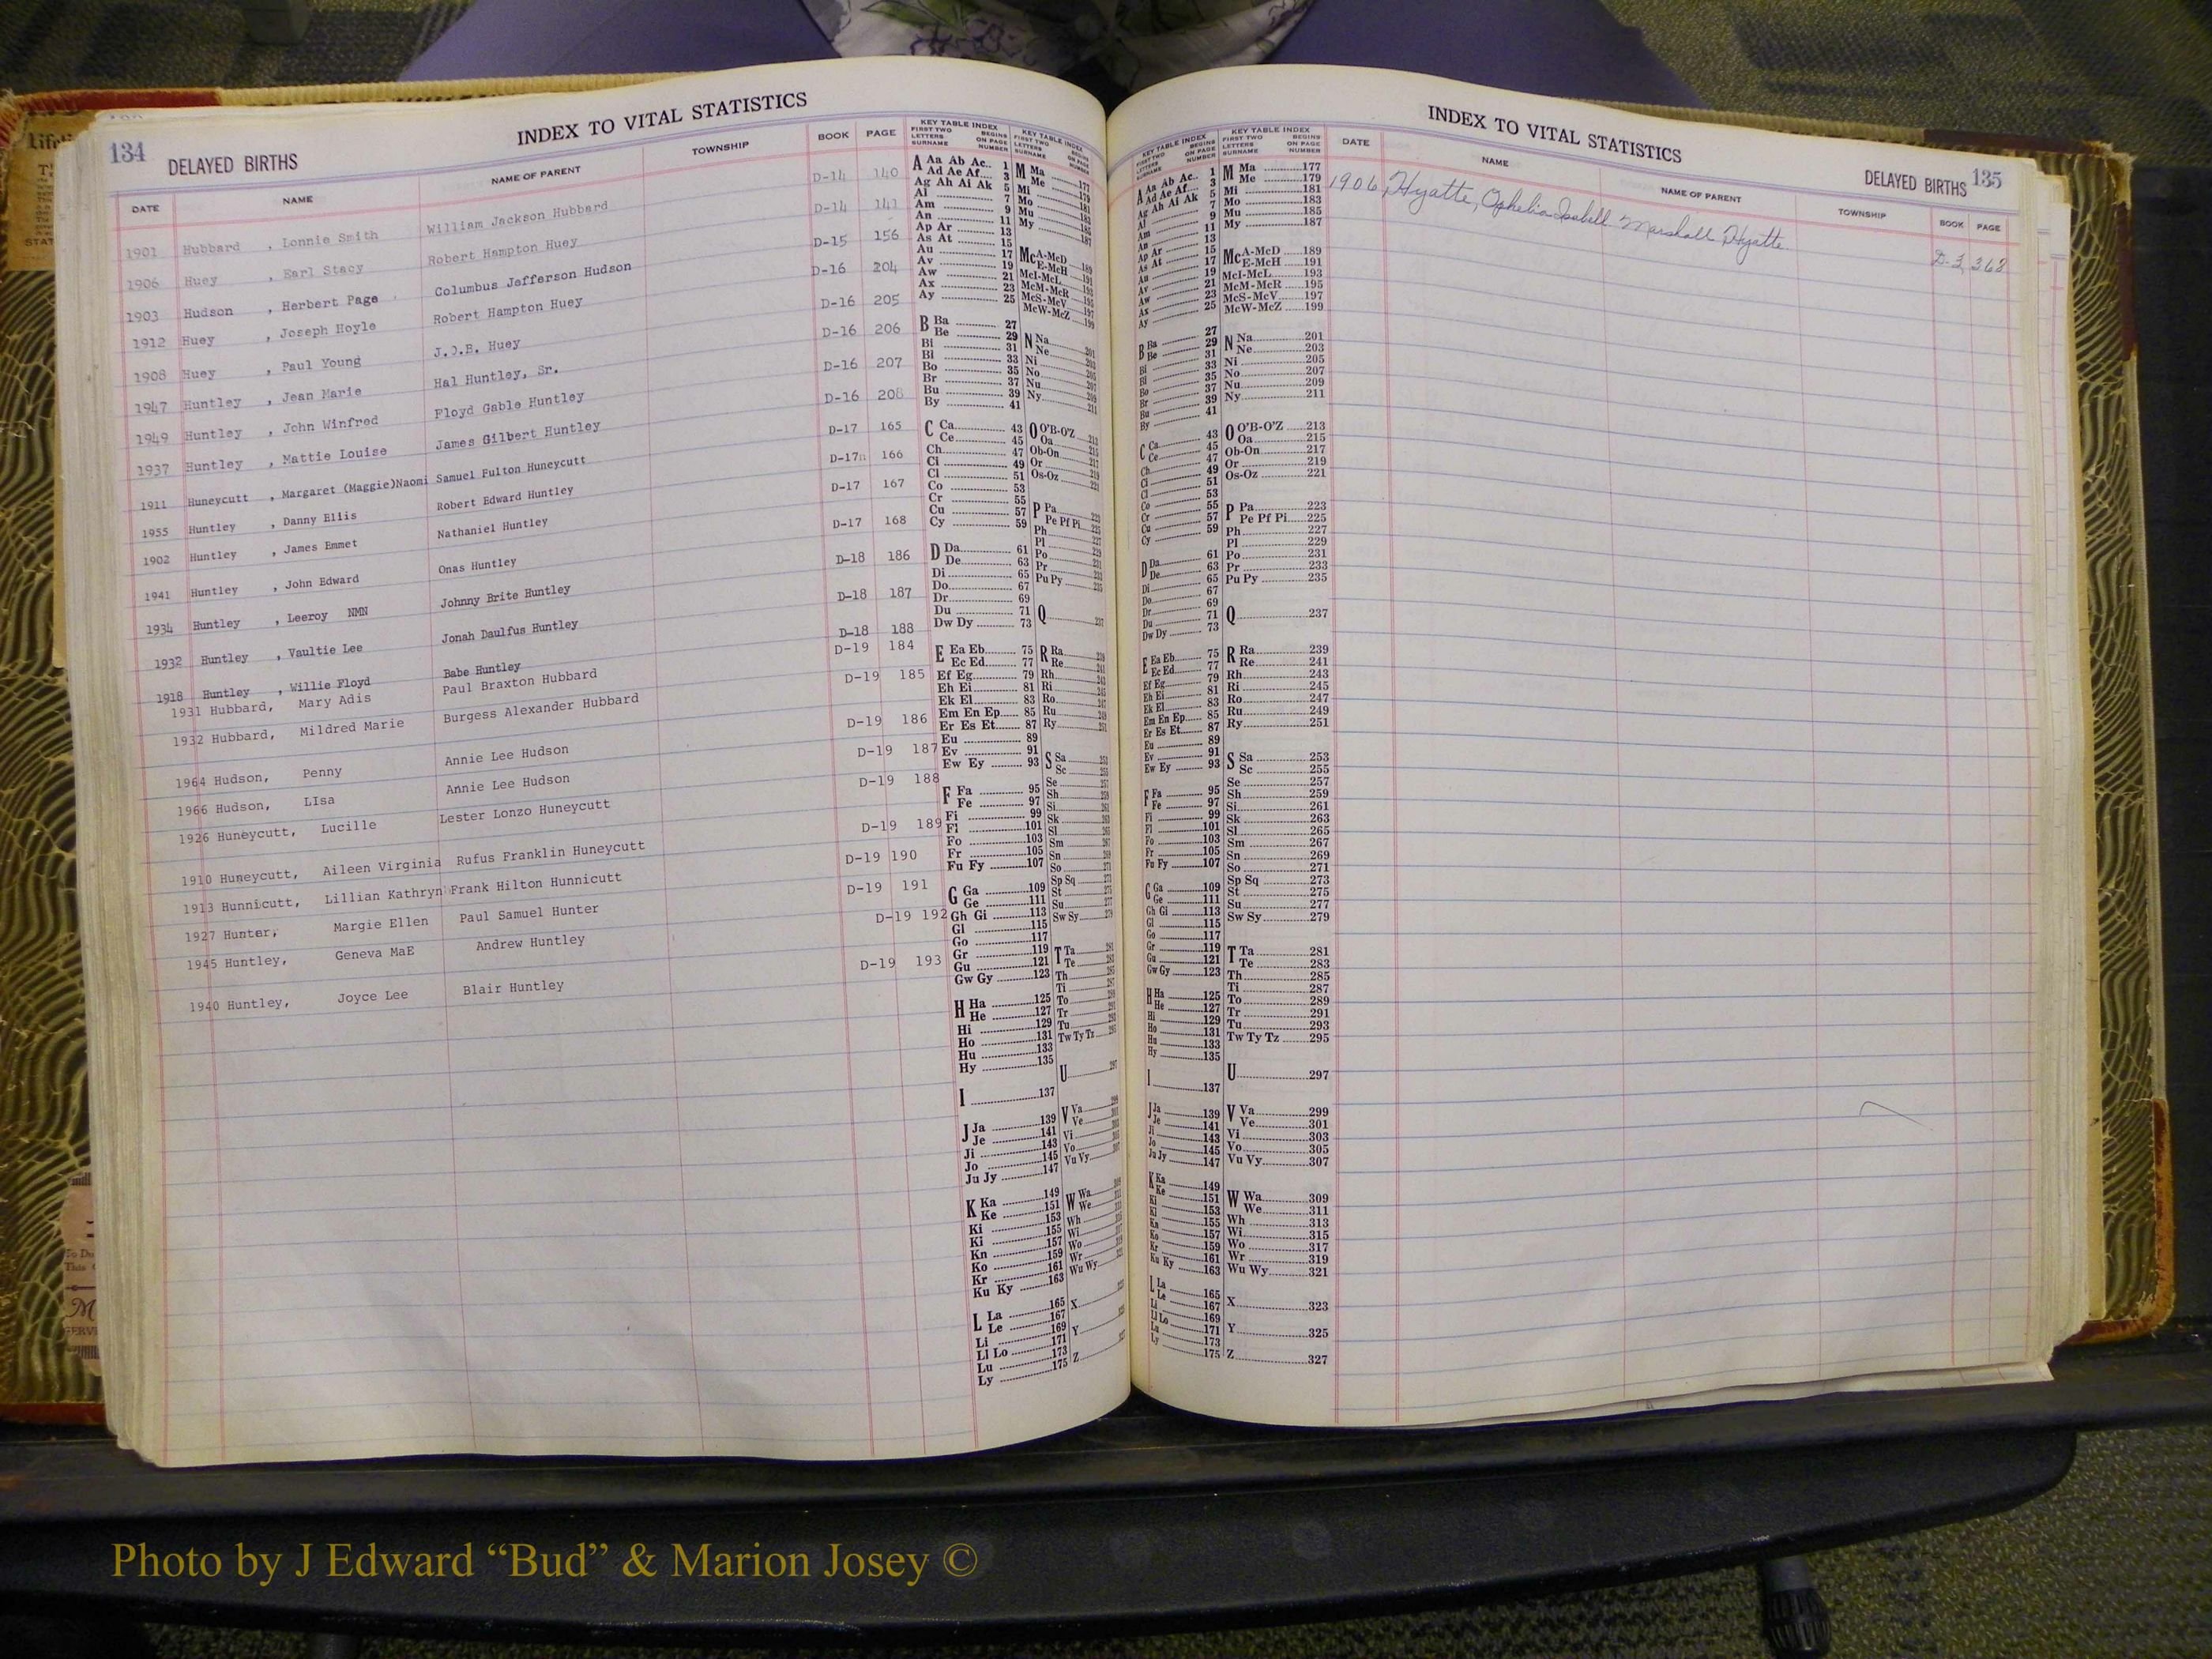 134
DELAYED BIRTHS
INDEX TO VITAL STATISTICS
DATE NAME NAME OF PARENT TOWNSHIP BOOK PAGE
1901 Hubbard , Lonnie Smith William Jackson Hubbard D-14 140
1906 Huey , Earl Stacy Robert Hampton Huey D-14 141
1903 Hudson , Herbert Page Columbus Jefferson Hudson D-15 156
1912 Huey , Joseph Hoyle Robert Hampton Huey D-16 204
1908 Huey , Paul Young J.O.B. Huey D-16 205
1947 Huntley , Jean Marie Hal Huntley, Sr. D-16 206
1949 Huntley , John Winfred Floyd Gable Huntley D-16 207
1937 Huntley , Mattie Louise James Gilbert Huntley D-16 208
1911 Huneycutt , Margaret (Maggie)Naomi Samuel Fulton Huneycutt D-17 165
1955 Huntley , Danny Ellis Robert Edward Huntley D-17 166
1902 Huntley , James Emmet Nathaniel Huntley D-17 167
1941 Huntley , John Edward Onas Huntley D-17 168
1934 Huntley , Leeroy NMN Johnny Brite Huntley D-18 186
1932 Huntley , Vaultie Lee Jonah Daulfus Huntley D-18 187
1918 Huntley , Willie Floyd Babe Huntley D-18 188
1931 Hubbard, Mary Adis Paul Braxton Hubbard D-19 184
1932 Hubbard, Mildred Marie Burgess Alexander Hubbard D-19 185
1964 Hudson, Penny Annie Lee Hudson D-19 186
1966 Hudson, LIsa Annie Lee Hudson D-19 187
1926 Huneycutt, Lucille Lester Lonzo Huneycutt D-19 188
1910 Huneycutt, Aileen Virginia Rufus Franklin Huneycutt D-19 189
1913 Hunnicutt, Lillian Kathryn Frank Hilton Hunnicutt D-19 190
1927 Hunter, Margie Ellen Paul Samuel Hunter D-19 191
1945 Huntley, Geneva MaE Andrew Huntley D-19 192
1940 Huntley, Joyce Lee Blair Huntley D-19 193
INDEX TO VITAL STATISTICS
DELAYED BIRTHS 135
DATE NAME NAME OF PARENT TOWNSHIP BOOK PAGE
1906 Hyatte, Ophelia Isabell Marshall Hyatte D-3 368
KEY TABLE INDEX
FIRST TWO LETTERS SURNAME BEGINS ON PAGE NUMBER
A Aa Ab Ac.. 1
Ad Ae Af.... 3
Ag Ah Ai Ak 5
Al 7
Am 9
An 11
Ap Ar 13
As At 15
Au 17
Av 19
Aw 21
Ax 23
Ay 25
B Ba 27
Be 29
Bi 31
Bl 33
Bo 35
Br 37
Bu 39
By 41
C Ca 43
Ce 45
Ch 47
Ci 49
Cl 51
Co 53
Cr 55
Cu 57
Cy 59
D Da 61
De 63
Di 65
Do 67
Dr 69
Du 71
Dw Dy 73
E Ea Eb 75
Ec Ed 77
Ef Eg 79
Eh Ei 81
Ek El 83
Em En Ep 85
Er Es Et 87
Eu 89
Ev 91
Ew Ey 93
F Fa 95
Fe 97
Fi 99
Fl 101
Fo 103
Fr 105
Fu Fy 107
G Ga 109
Ge 111
Gh Gi 113
Gl 115
Go 117
Gr 119
Gu 121
Gw Gy 123
H Ha 125
He 127
Hi 129
Ho 131
Hu 133
Hy 135
I 137
J Ja 139
Je 141
Ji 143
Jo 145
Ju Jy 147
K Ka 149
Ke 151
Ki 153
Kl 155
Kn 157
Ko 159
Kr 161
Ku Ky 163
L La 165
Le 167
Li 169
Ll Lo 171
Lu 173
Ly 175
M Ma 177
Me 179
Mi 181
Mo 183
Mu 185
My 187
Mc A-McD 189
E-McH 191
McI-McL 193
McM-McR 195
McS-McV 197
McW-McZ 199
N Na 201
Ne 203
Ni 205
No 207
Nu 209
Ny 211
O O'B-O'Z 213
Oa 215
Ob-On 217
Or 219
Os-Oz 221
P Pa 223
Pe Pf Pi 225
Ph 227
Pl 229
Po 231
Pr 233
Pu Py 235
Q 237
R Ra 239
Re 241
Rh 243
Ri 245
Ro 247
Ru 249
Ry 251
S Sa 253
Sc 255
Se 257
Sh 259
Si 261
Sk 263
Sl 265
Sm 267
Sn 269
So 271
Sp Sq 273
St 275
Su 277
Sw Sy 279
T Ta 281
Te 283
Th 285
Ti 287
To 289
Tr 291
Tu 293
Tw Ty Tz 295
U 297
V Va 299
Ve 301
Vi 303
Vo 305
Vu Vy 307
W Wa 309
We 311
Wh 313
Wi 315
Wo 317
Wr 319
Wu Wy 321
X 323
Y 325
Z 327
Photo by J Edward “Bud” & Marion Josey ©